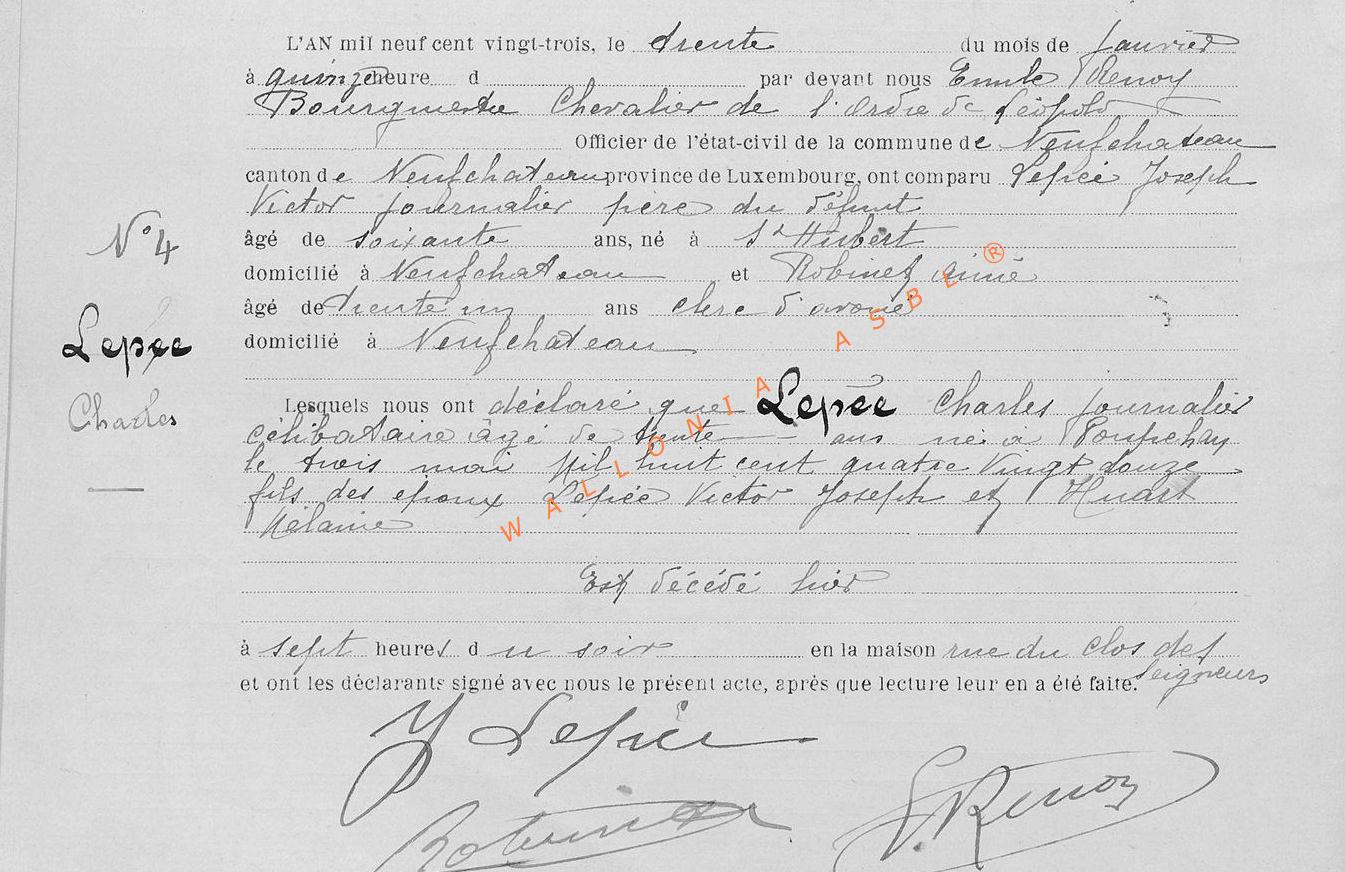 L'AN mil neuf cent vingt-trois, le trente du mois de Janvier
à quinze heure d par devant nous Emile Renoy
Bourgmestre Chevalier de l'Ordre de Léopold
Officier de l'état-civil de la commune de Neufchateau
canton de Neufchateau province de Luxembourg, ont comparu Lepée Joseph
Victor journalier père du défunt
âgé de soixante ans, né à St Hubert
domicilié à Neufchateau et Robinet Aimé
âgé de trente un ans clerc d'avoué
domicilié à Neufchateau
N° 4
Lepée
Charles
Lesquels nous ont déclaré que Lepée Charles journalier
célibataire âgé de trente ans né à
le trois mai Mil huit cent quatre vingt douze
fils des epoux Lepée Victor Joseph et Huart
Mélanie
Est décédé hier
à sept heures du soir en la maison rue du Clos des
Seigneurs
et ont les déclarants signé avec nous le présent acte, après que lecture leur en a été faite.
Lepée
Robinet
E. Renoy
WALLONIA ASBL ®